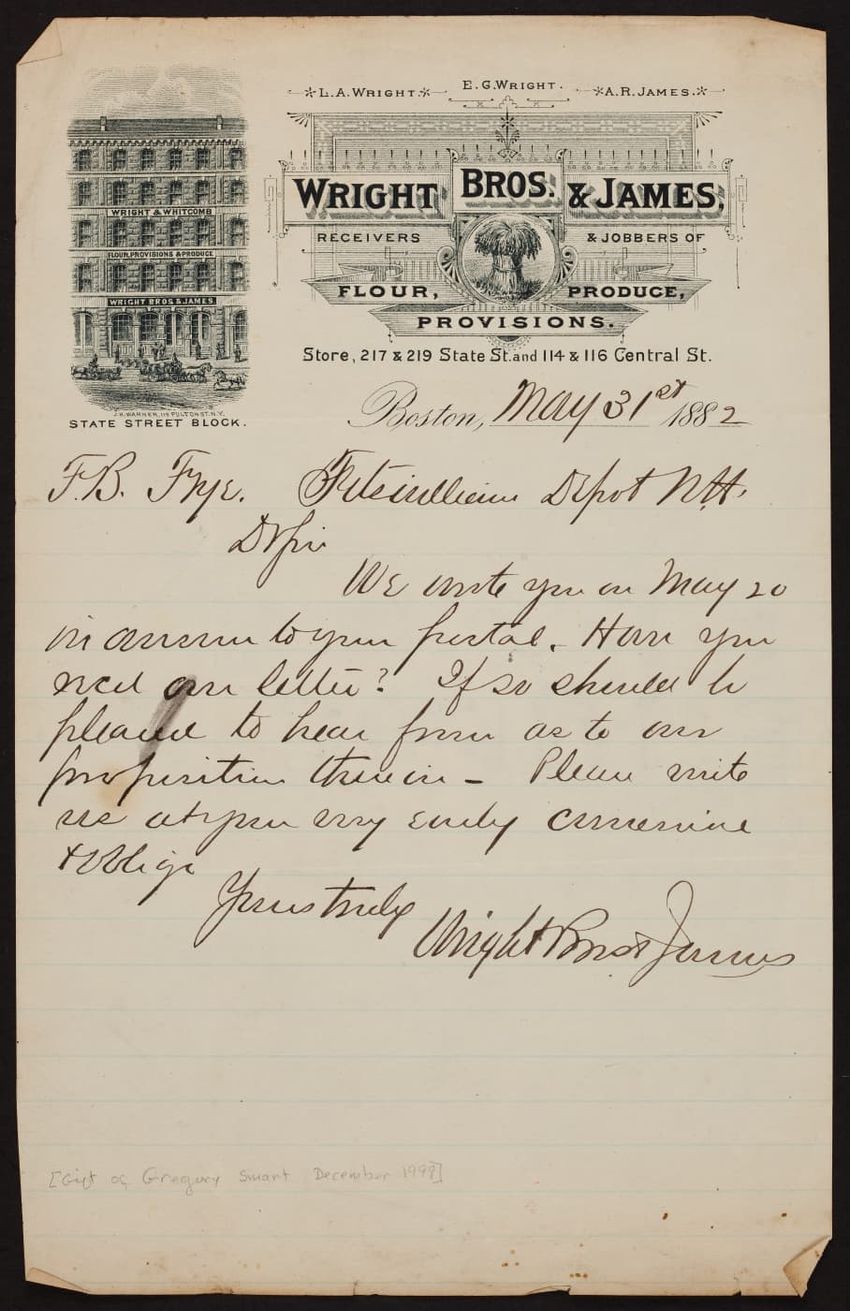 L.A. WRIGHT. E.G. WRIGHT. A.R. JAMES.
WRIGHT BROS. & JAMES,
RECEIVERS & JOBBERS OF
FLOUR, PRODUCE,
PROVISIONS.
Store, 217 & 219 State St. and 114 & 116 Central St.
WRIGHT & WHITCOMB
FLOUR, PROVISIONS & PRODUCE
WRIGHT BROS & JAMES
J.H. WARNER, 119 FULTON ST. N.Y.
STATE STREET BLOCK.
Boston, May 31st 1882
F.B. Frye. Fitzwilliam Depot N.H.
Dr Sir
We wrote you on May 20
in answer to your postal. Have you
recd our letter? If so should be
pleased to hear from as to our
proposition therein - Please write
us at your very early convenience
& Oblige
Yours truly
Wright Bros & James
[Gift of Gregory Smart December 1999]